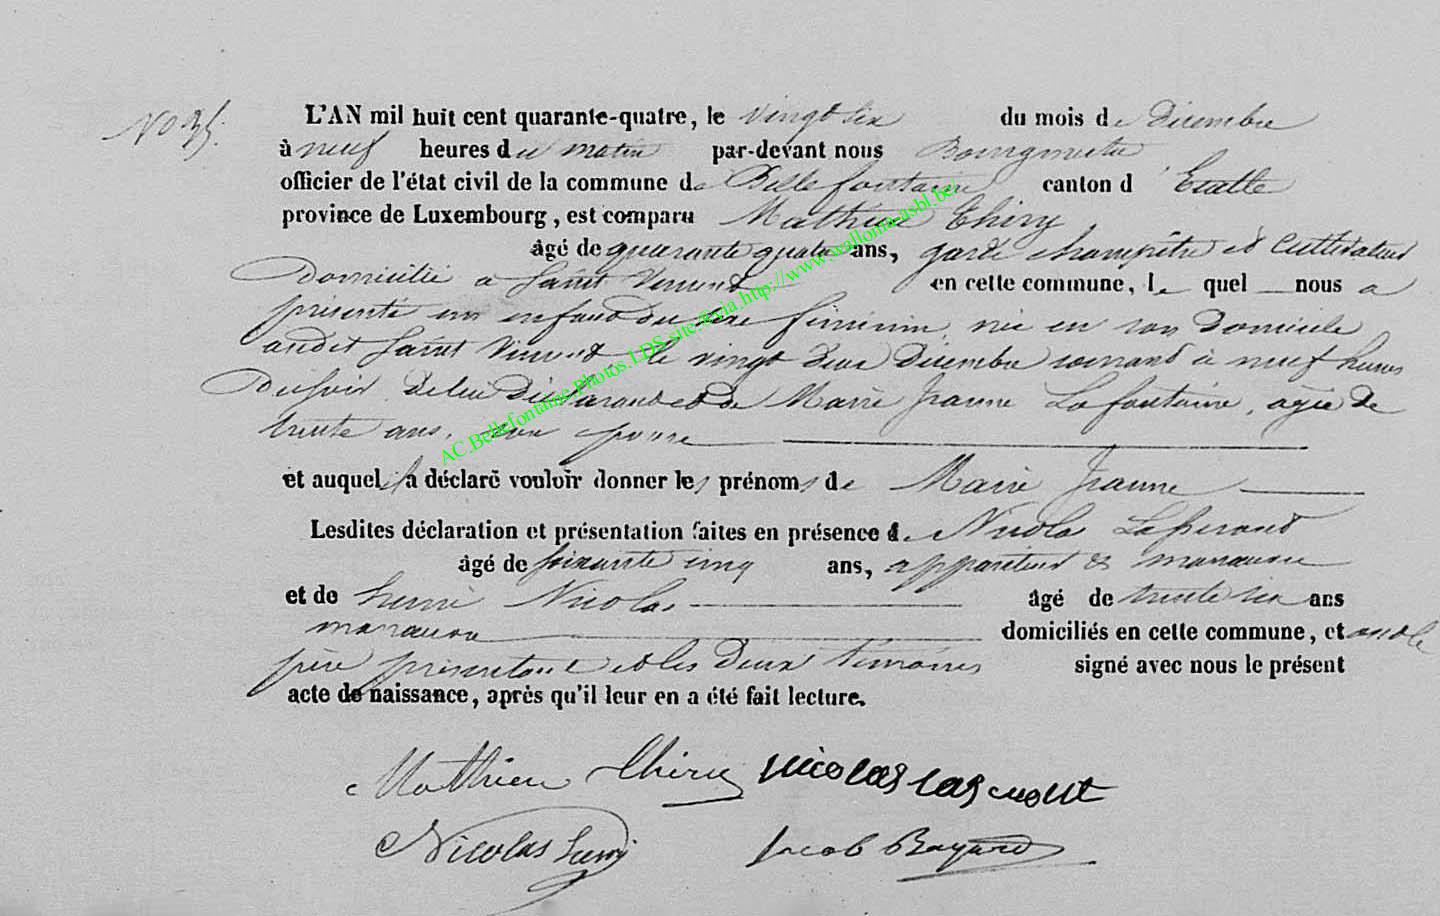 No 35.
L'AN mil huit cent quarante-quatre, le vingt six du mois de Décembre
à neuf heures du matin par-devant nous Bourgmestre
officier de l'état civil de la commune de Bellefontaine canton d'Etalle
province de Luxembourg, est comparu Mathieu Thiry
âgé de quarante quatre ans, garde champêtre et cultivateur
Domicilié à Saint Vincent en cette commune, lequel nous a
présenté un enfant du sexe féminin née en son domicile
audit Saint Vincent le vingt deux décembre courant à neuf heures
Du soir, de lui Déclarant et de Marie Jeanne Lafontaine, agée de
trente ans, son épouse
et auquel il a déclaré vouloir donner les prénoms de Marie Jeanne
Lesdites déclaration et présentation faites en présence de Nicolas
âgé de soixante cinq ans, appariteur & manœuvre
et de henri Nicolas âgé de trente six ans
manœuvre domiciliés en cette commune, et ont le
père présentant et les deux témoins signé avec nous le présent
acte de naissance, après qu'il leur en a été fait lecture.
Mathieu Thiry nicolas
Nicolas henri Jacob Bayard
AC.Bellefontaine.Photos.LDS.site.@via.http://www.wallonia-asbl.be/